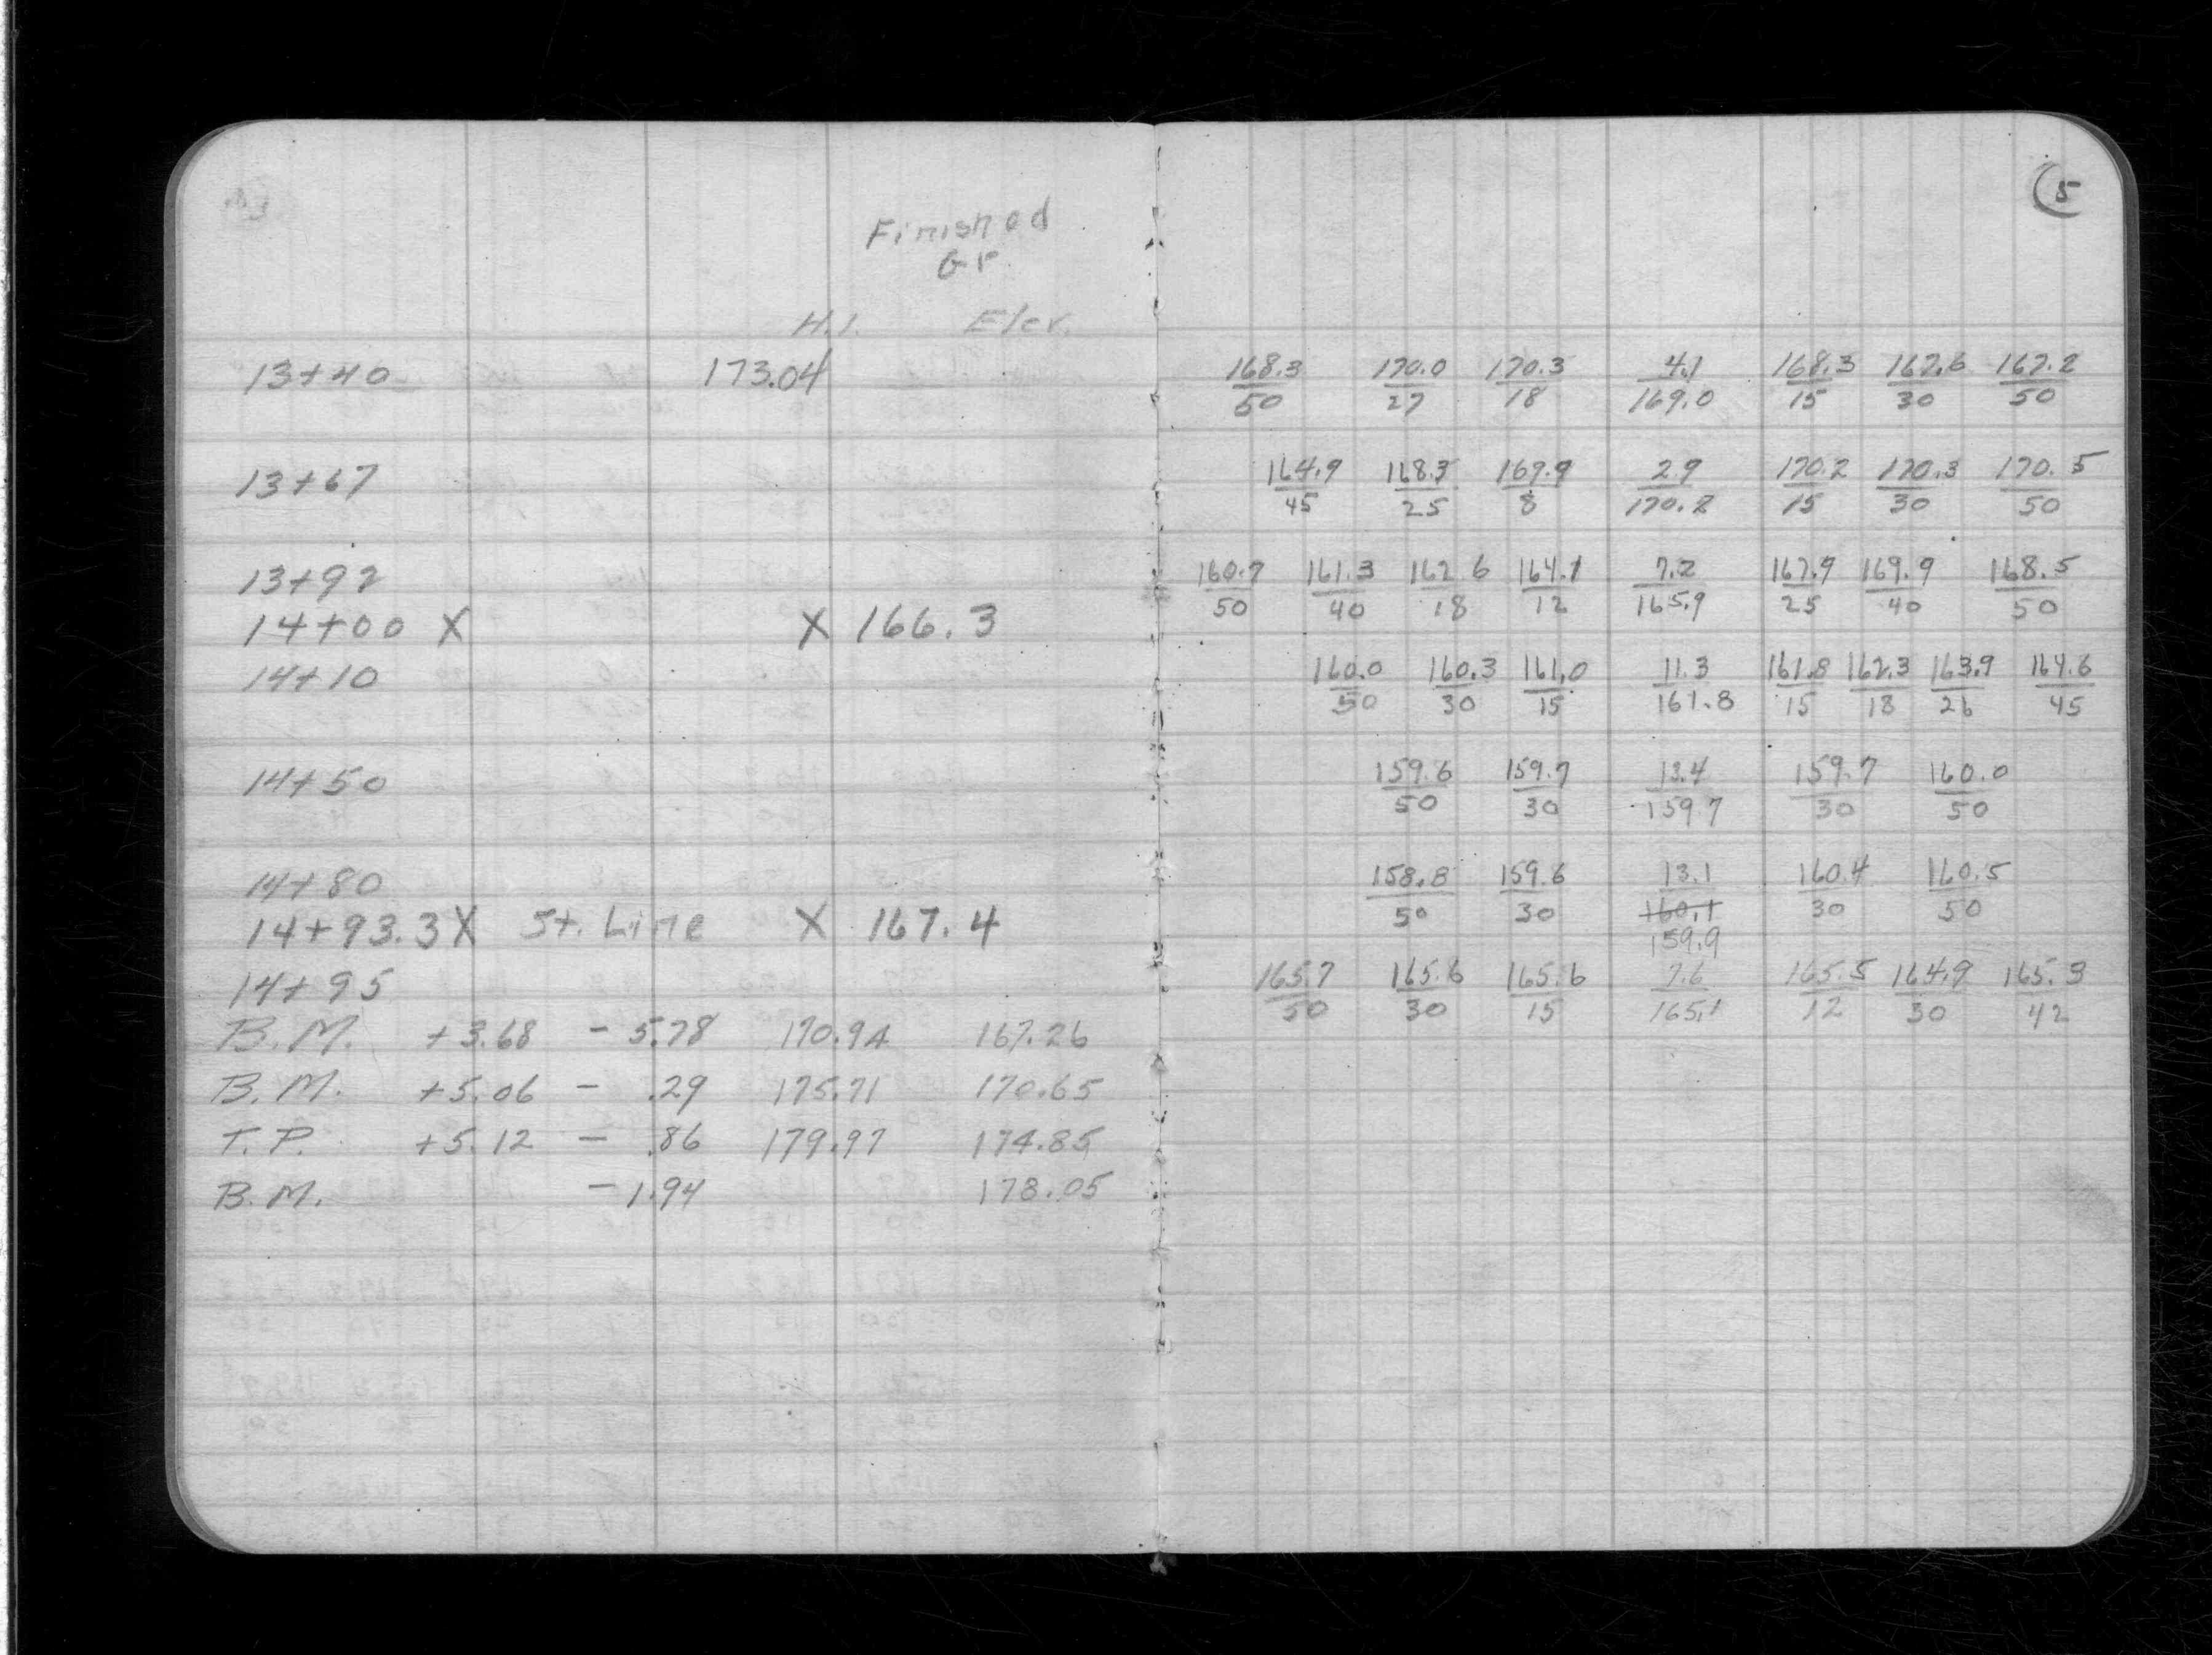 Finished
Gr.
H.I. Elev.
13+40 173.04
13+67
13+92
14+00 X X 166.3
14+10
14+50
14+80
14+93.3 X St. Line X 167.4
14+95
B.M. +3.68 - 5.78 170.94 167.26
B.M. +5.06 - .29 175.71 170.65
T.P. +5.12 - .86 179.97 174.85
B.M. - 1.94 178.05
5
168.3 170.0 170.3 4.1 168.3 167.6 167.2
50 27 18 169.0 15 30 50
164.9 168.3 169.9 2.9 170.2 170.3 170.5
45 25 8 170.2 15 30 50
160.7 161.3 162.6 164.1 7.2 167.9 169.9 168.5
50 40 18 12 165.9 25 40 50
160.0 160.3 161.0 11.3 161.8 162.3 163.9 164.6
50 30 15 161.8 15 18 26 45
159.6 159.7 13.4 159.7 160.0
50 30 159.7 30 50
158.8 159.6 13.1 160.4 160.5
50 30 160.1 30 50
159.9
165.7 165.6 165.6 7.6 165.5 164.9 165.3
50 30 15 165.1 12 30 42